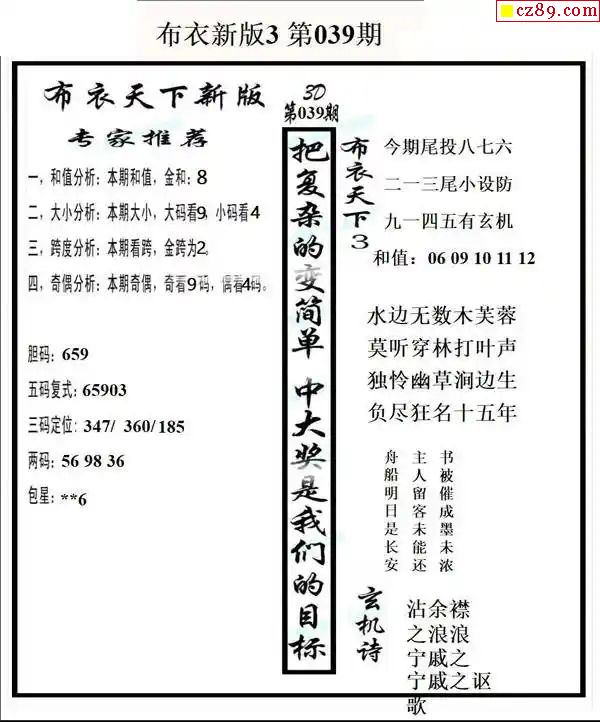 cz89.com
布衣新版3 第039期
布衣天下新版
专家推荐
一，和值分析：本期和值，金和：8
二，大小分析：本期大小，大码看9，小码看4
三，跨度分析：本期看跨，金跨为2。
四，奇偶分析：本期奇偶，奇看9码，偶看4码。
胆码：659
五码复式：65903
三码定位：347/ 360/185
两码：56 98 36
包星：**6
3D
第039期
把复杂的变简单 中大奖是我们的目标
布衣天下3
今期尾投八七六
二一三尾小设防
九一四五有玄机
和值：06 09 10 11 12
水边无数木芙蓉
莫听穿林打叶声
独怜幽草涧边生
负尽狂名十五年
书被催成墨未浓
主人留客未能还
舟船明日是长安
玄机诗
沾余襟
之浪浪
宁戚之
宁戚之讴
歌